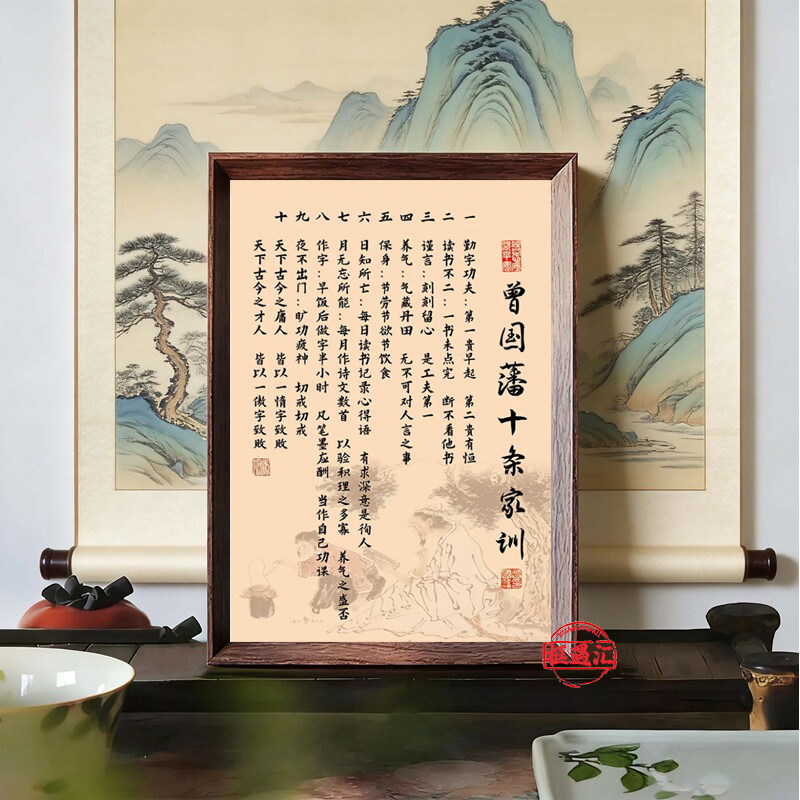 曾国藩十条家训
一 勤字功夫:第一贵早起 第二贵有恒
二 读书不二:一书未点完 断不看他书
三 谨言:刻刻留心 是工夫第一
四 养气:气藏丹田 无不可对人言之事
五 保身:节劳节欲节饮食
六 日知所亡:每日读书记录心得语 有求深意是徇人
七 月无忘所能:每月作诗文数首 以验积理之多寡 养气之盛否
八 作字:早饭后做字半小时 凡笔墨应酬 当作自己功课
九 夜不出门:旷功疲神 切戒切戒
十 天下古今之庸人 皆以一惰字致败
天下古今之才人 皆以一傲字致败